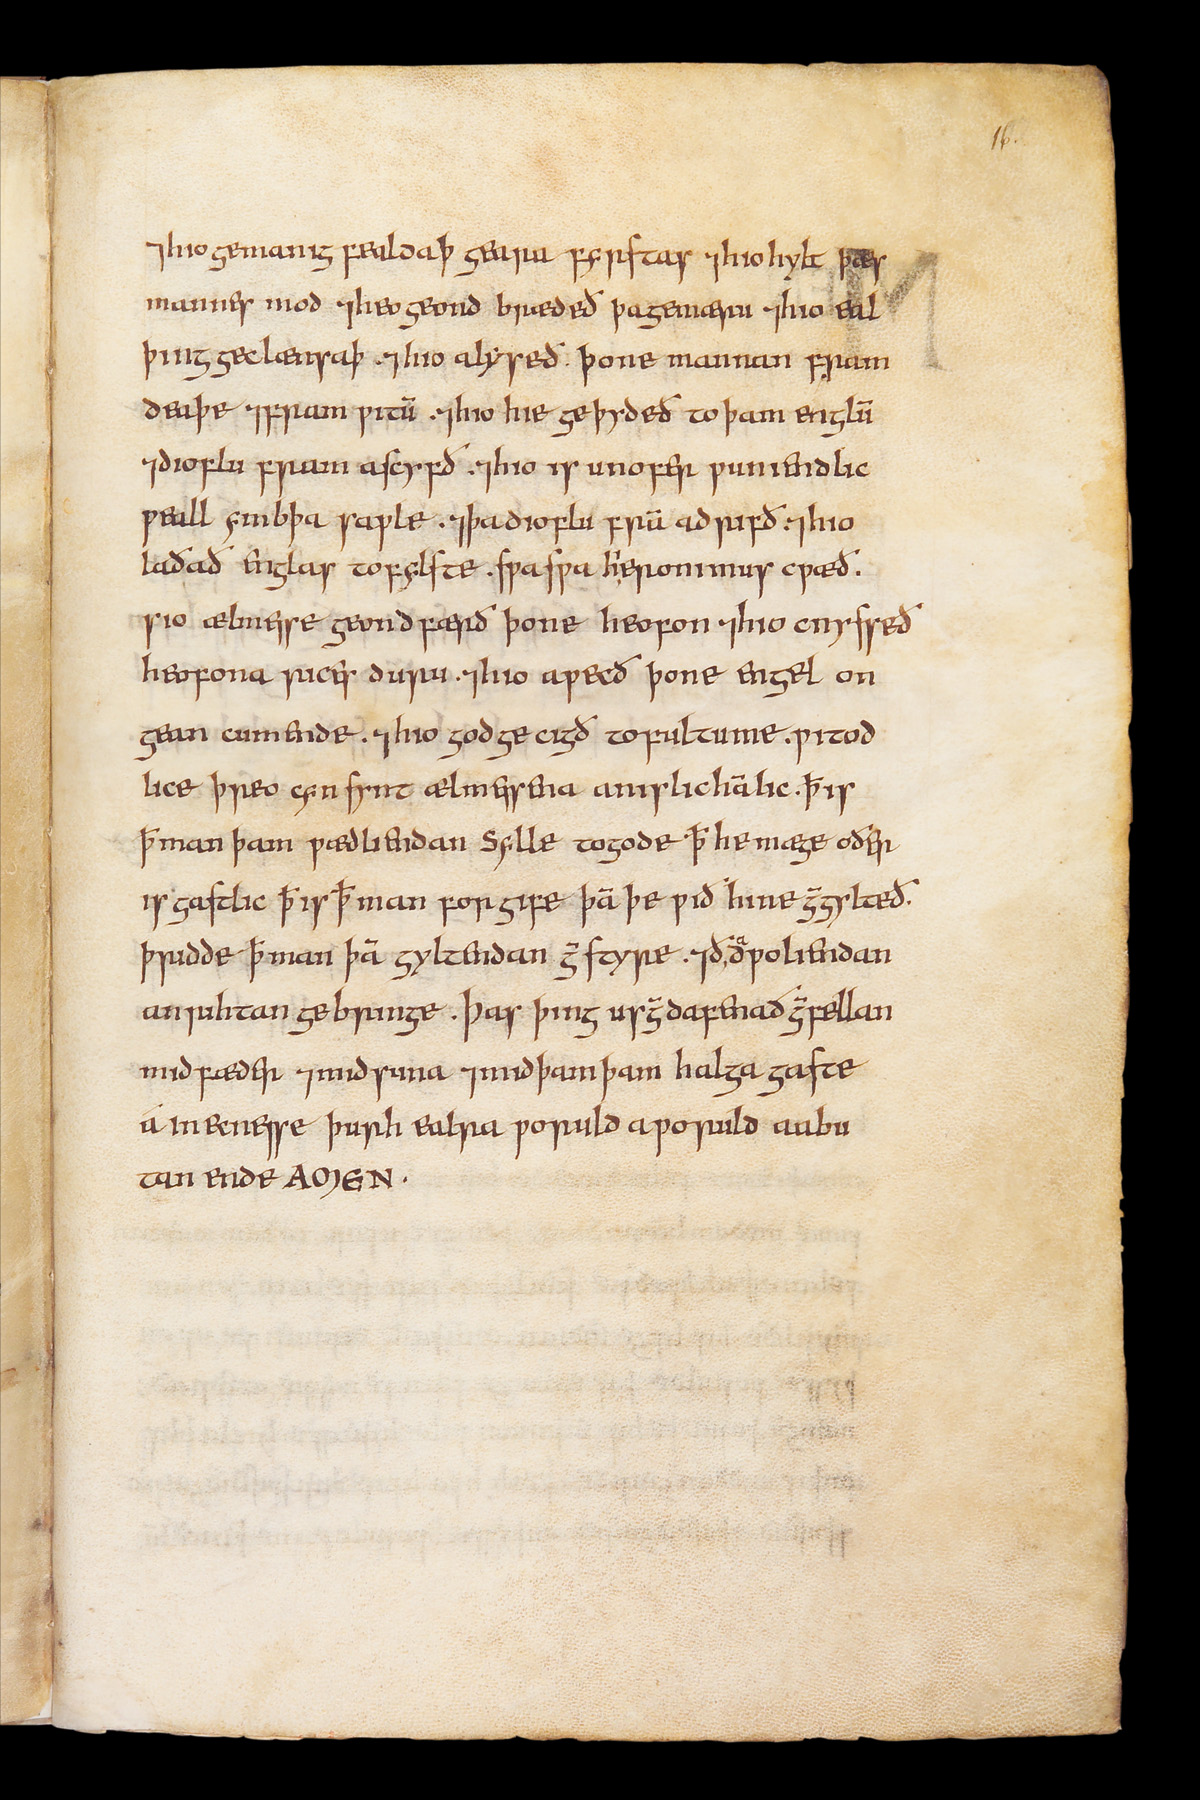 16.
⁊ hio gemanig fealdaþ geara fyrstas ⁊ hio hylt þæs
mannes mod ⁊ heo geond brædeð þa gemæru ⁊ hio eal
þing geclænsaþ . ⁊ hio alyseð . þone mannan fram
deaþe ⁊ fram ƿitū . ⁊ hio hie geþydeð to þam englū
⁊ dioflu fram ascyrfð . ⁊ hio is unofer ƿuniendlic
ƿeall ymb þa saƿle . ⁊ þa dioflu frā adrifð . ⁊ hio
laðað englas to fylste . sƿa sƿa hieronimus cƿæð .
sio ælmesse geond færð þone heofon ⁊ hio cnysseð
heofona rices duru . ⁊ hio aƿecð þone engel on
gean cumende . ⁊ hio god gecigð to fultume . ƿitod
lice þreo cyn synt ælmessena an is lichālic . ꝥ is
ꝥ man þam ƿædliendan sylle to gode ꝥ he mæge oðer
is gastlic ꝥ is ꝥ man forgife þā þe ƿið hine ḡgylteð .
þridde ꝥ man þā gyltendan ḡstyre . ⁊ ðā dƿoliendan
an rihtan gebringe . Þas þing us ḡdafenað ḡfellan
mid fæder ⁊ mid suna ⁊ mid þam þam halga gaste
á in ecnesse þurh ealra ƿoruld a ƿoruld aabu
tan ende AMEN .